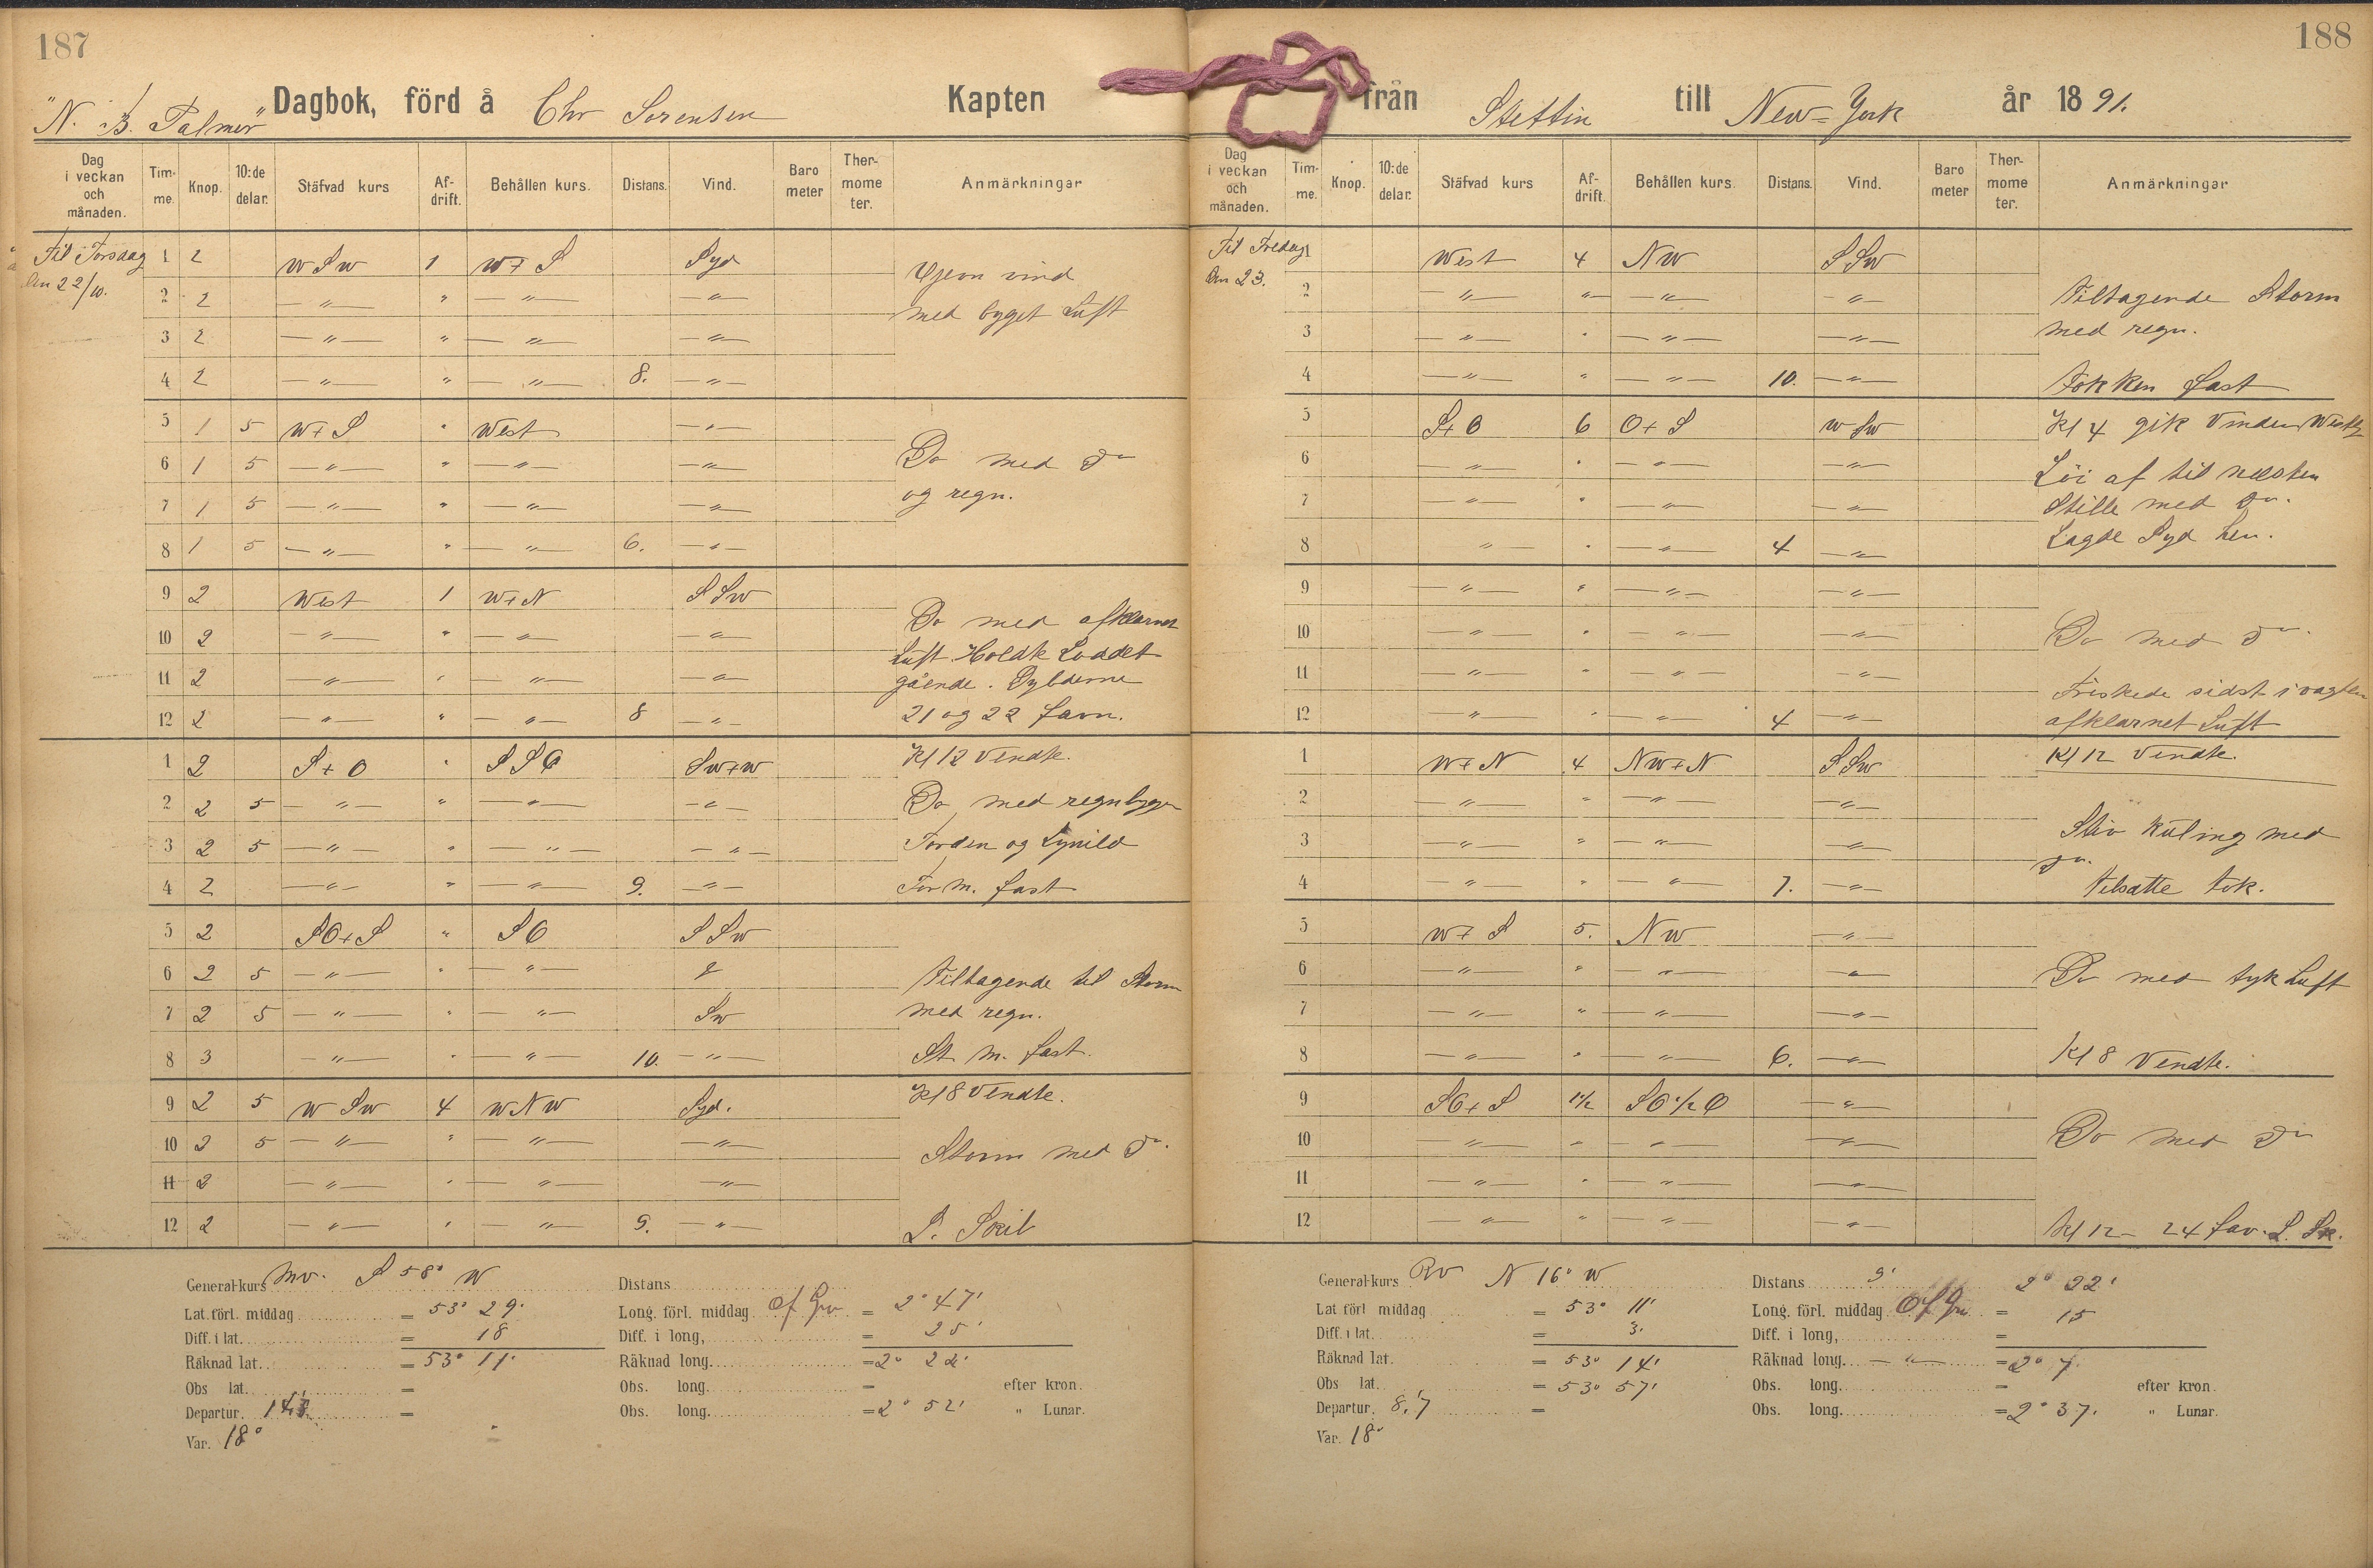 187
"N. B. Palmer" Dagbok, förd å Chr Sorensen Kapten
Dag i veckan och månaden. Tim-me. Knop. 10:de delar. Stäfvad kurs Af-drift. Behållen kurs. Distans. Vind. Baro meter Ther-mome ter. Anmärkningar
Til Torsdag 1 2 W S W 1 W + S Syd
den 22/10. 2 2 — " — " — " — — " —
Gjevn vind
med byget Luft
3 2 — " — " — " — — " —
4 2 — " — " — " — 8. — " —
5 1 5 W + S " West — " —
6 1 5 — " — " — " — — " — Do med do
7 1 5 — " — " — " — — " — og regn.
8 1 5 — " — " — " — 6. — " —
9 2 West 1 W + N S S W
10 2 — " — " — " — — " — Do med afklarnet
Luft. Holdt Loddet
11 2 — " — " — " — — " — gående. Dybderne
12 2 — " — " — " — 8 — " — 21 og 22 favn.
1 2 S + O " S S O SW + W Kl 12 Vendte.
2 2 5 — " — " — " — — " — Do med regnbyger
3 2 5 — " — " — " — — " — Torden og Lynild
4 2 — " — " — " — 9. — " — For M. fast
5 2 SO + S " SO S S W
6 2 5 — " — " — " — Tiltagende til Storm
7 2 5 — " — " — " — SW med regn.
8 3 — " — " — " — 10. — " — St M. fast.
9 2 5 W SW 4 W N W Syd. Kl 8 Vendte.
10 2 5 — " — " — " — — " — Storm med do.
11 2 — " — " — " — — " —
12 2 — " — " — " — 9. — " —
General-kurs Mv. S 58° W Distans
Lat. förl. middag = 53° 29' Long. förl. middag Of Gr = 2° 47'
Diff. i lat. = 18 Diff. i long, = 25'
Räknad lat. = 53° 11' Räknad long. = 2° 22'
Obs lat. = Obs. long. = efter kron.
Departur. = Obs. long. = 2° 52' " Lunar.
Var. 18°
188
från Stettin till New-York år 1891.
Dag i veckan och månaden. Tim-me. Knop. 10:de delar. Stäfvad kurs Af-drift. Behållen kurs. Distans. Vind. Baro meter Ther-mome ter. Anmärkningar
Til Fredag 1 West 4 NW S S W
den 23. 2 — " — " — " — — " — Tiltagende Storm
3 — " — " — " — — " — med regn.
4 — " — " — " — 10. — " — Fokken fast
5 S + O 6 O + S W SW Kl 4 gik Vinden Westlig
6 — " — " — " — — " — Löi af til næsten
7 — " — " — " — — " — Stille med do.
8 " " — " — 4 — " — Lagde Syd hen.
9 — " — " — " — — " —
10 — " — " — " — — " — Do med do.
11 — " — " — " — — " — Friskede sidst i vagten
12 — " — " — " — 4 — " — afklarnet Luft
1 W + N 4 NW + N S S W Kl 12 Vendte.
2 — " — " — " — — " —
3 — " — " — " — — " — Stiv Kuling med
do.
4 — " — " — " — 7. — " — tilsatte Fok.
5 W + S 5. NW — " —
6 — " — " — " — — " — Do med tyk Luft
7 — " — " — " — — " —
8 — " — " — " — 6. — " — Kl 8 Vendte.
9 SO + S 1 1/2 SO 1/2 O — " —
10 — " — " — " — — " — Do med do
11 — " — " — " — — " —
12 — " — " — " — — " — Kl 12 — 24 fav. L. Sk.
General-kurs Rv N 16° W Distans 9' 2° 22'
Lat förl middag = 53° 11' Long. förl. middag Of Gr = 15
Diff. i lat. = 3' Diff. i long, =
Räknad lat. = 53° 14' Räknad long. — " — = 2° 7'
Obs lat. = 53° 57' Obs. long. = efter kron.
Departur. 8,7 = Obs. long. = 2° 37' " Lunar.
Var. 18°